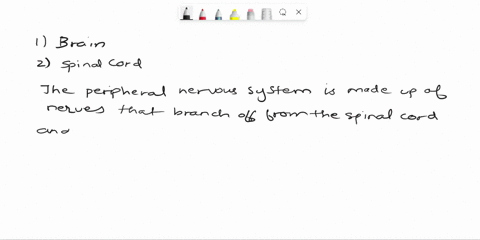 1) Brain
2) Spinal Cord
The peripheral nervous system is made up of
nerves that branch off from the spinal cord
and